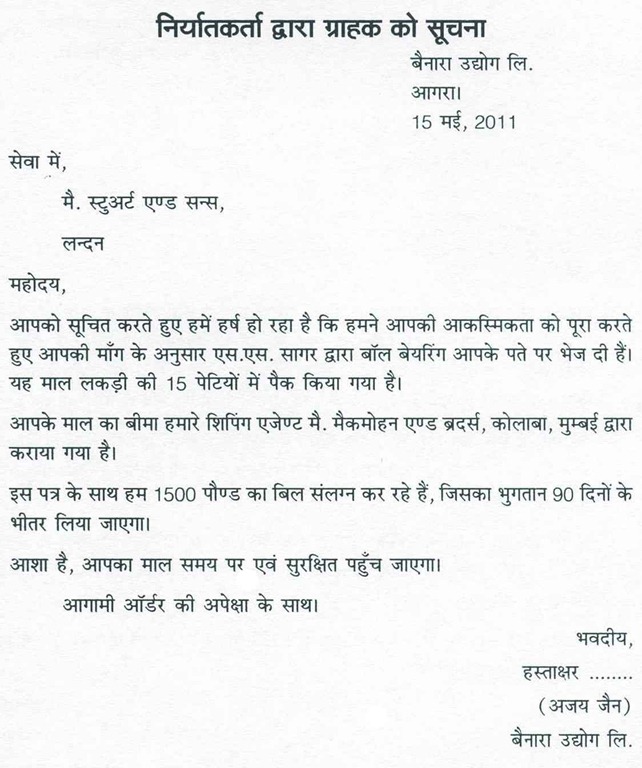 निर्यातकर्ता द्वारा ग्राहक को सूचना
बैनारा उद्योग लि.
आगरा।
15 मई, 2011
सेवा में,
मै. स्टुअर्ट एण्ड सन्स,
लन्दन
महोदय,
आपको सूचित करते हुए हमें हर्ष हो रहा है कि हमने आपकी आकस्मिकता को पूरा करते
हुए आपकी माँग के अनुसार एस.एस. सागर द्वारा बॉल बेयरिंग आपके पते पर भेज दी हैं।
यह माल लकड़ी की 15 पेटियों में पैक किया गया है।
आपके माल का बीमा हमारे शिपिंग एजेण्ट मै. मैकमोहन एण्ड ब्रदर्स, कोलाबा, मुम्बई द्वारा
कराया गया है।
इस पत्र के साथ हम 1500 पौण्ड का बिल संलग्न कर रहे हैं, जिसका भुगतान 90 दिनों के
भीतर लिया जाएगा।
आशा है, आपका माल समय पर एवं सुरक्षित पहुँच जाएगा।
आगामी ऑर्डर की अपेक्षा के साथ।
भवदीय,
हस्ताक्षर ........
(अजय जैन)
बैनारा उद्योग लि.